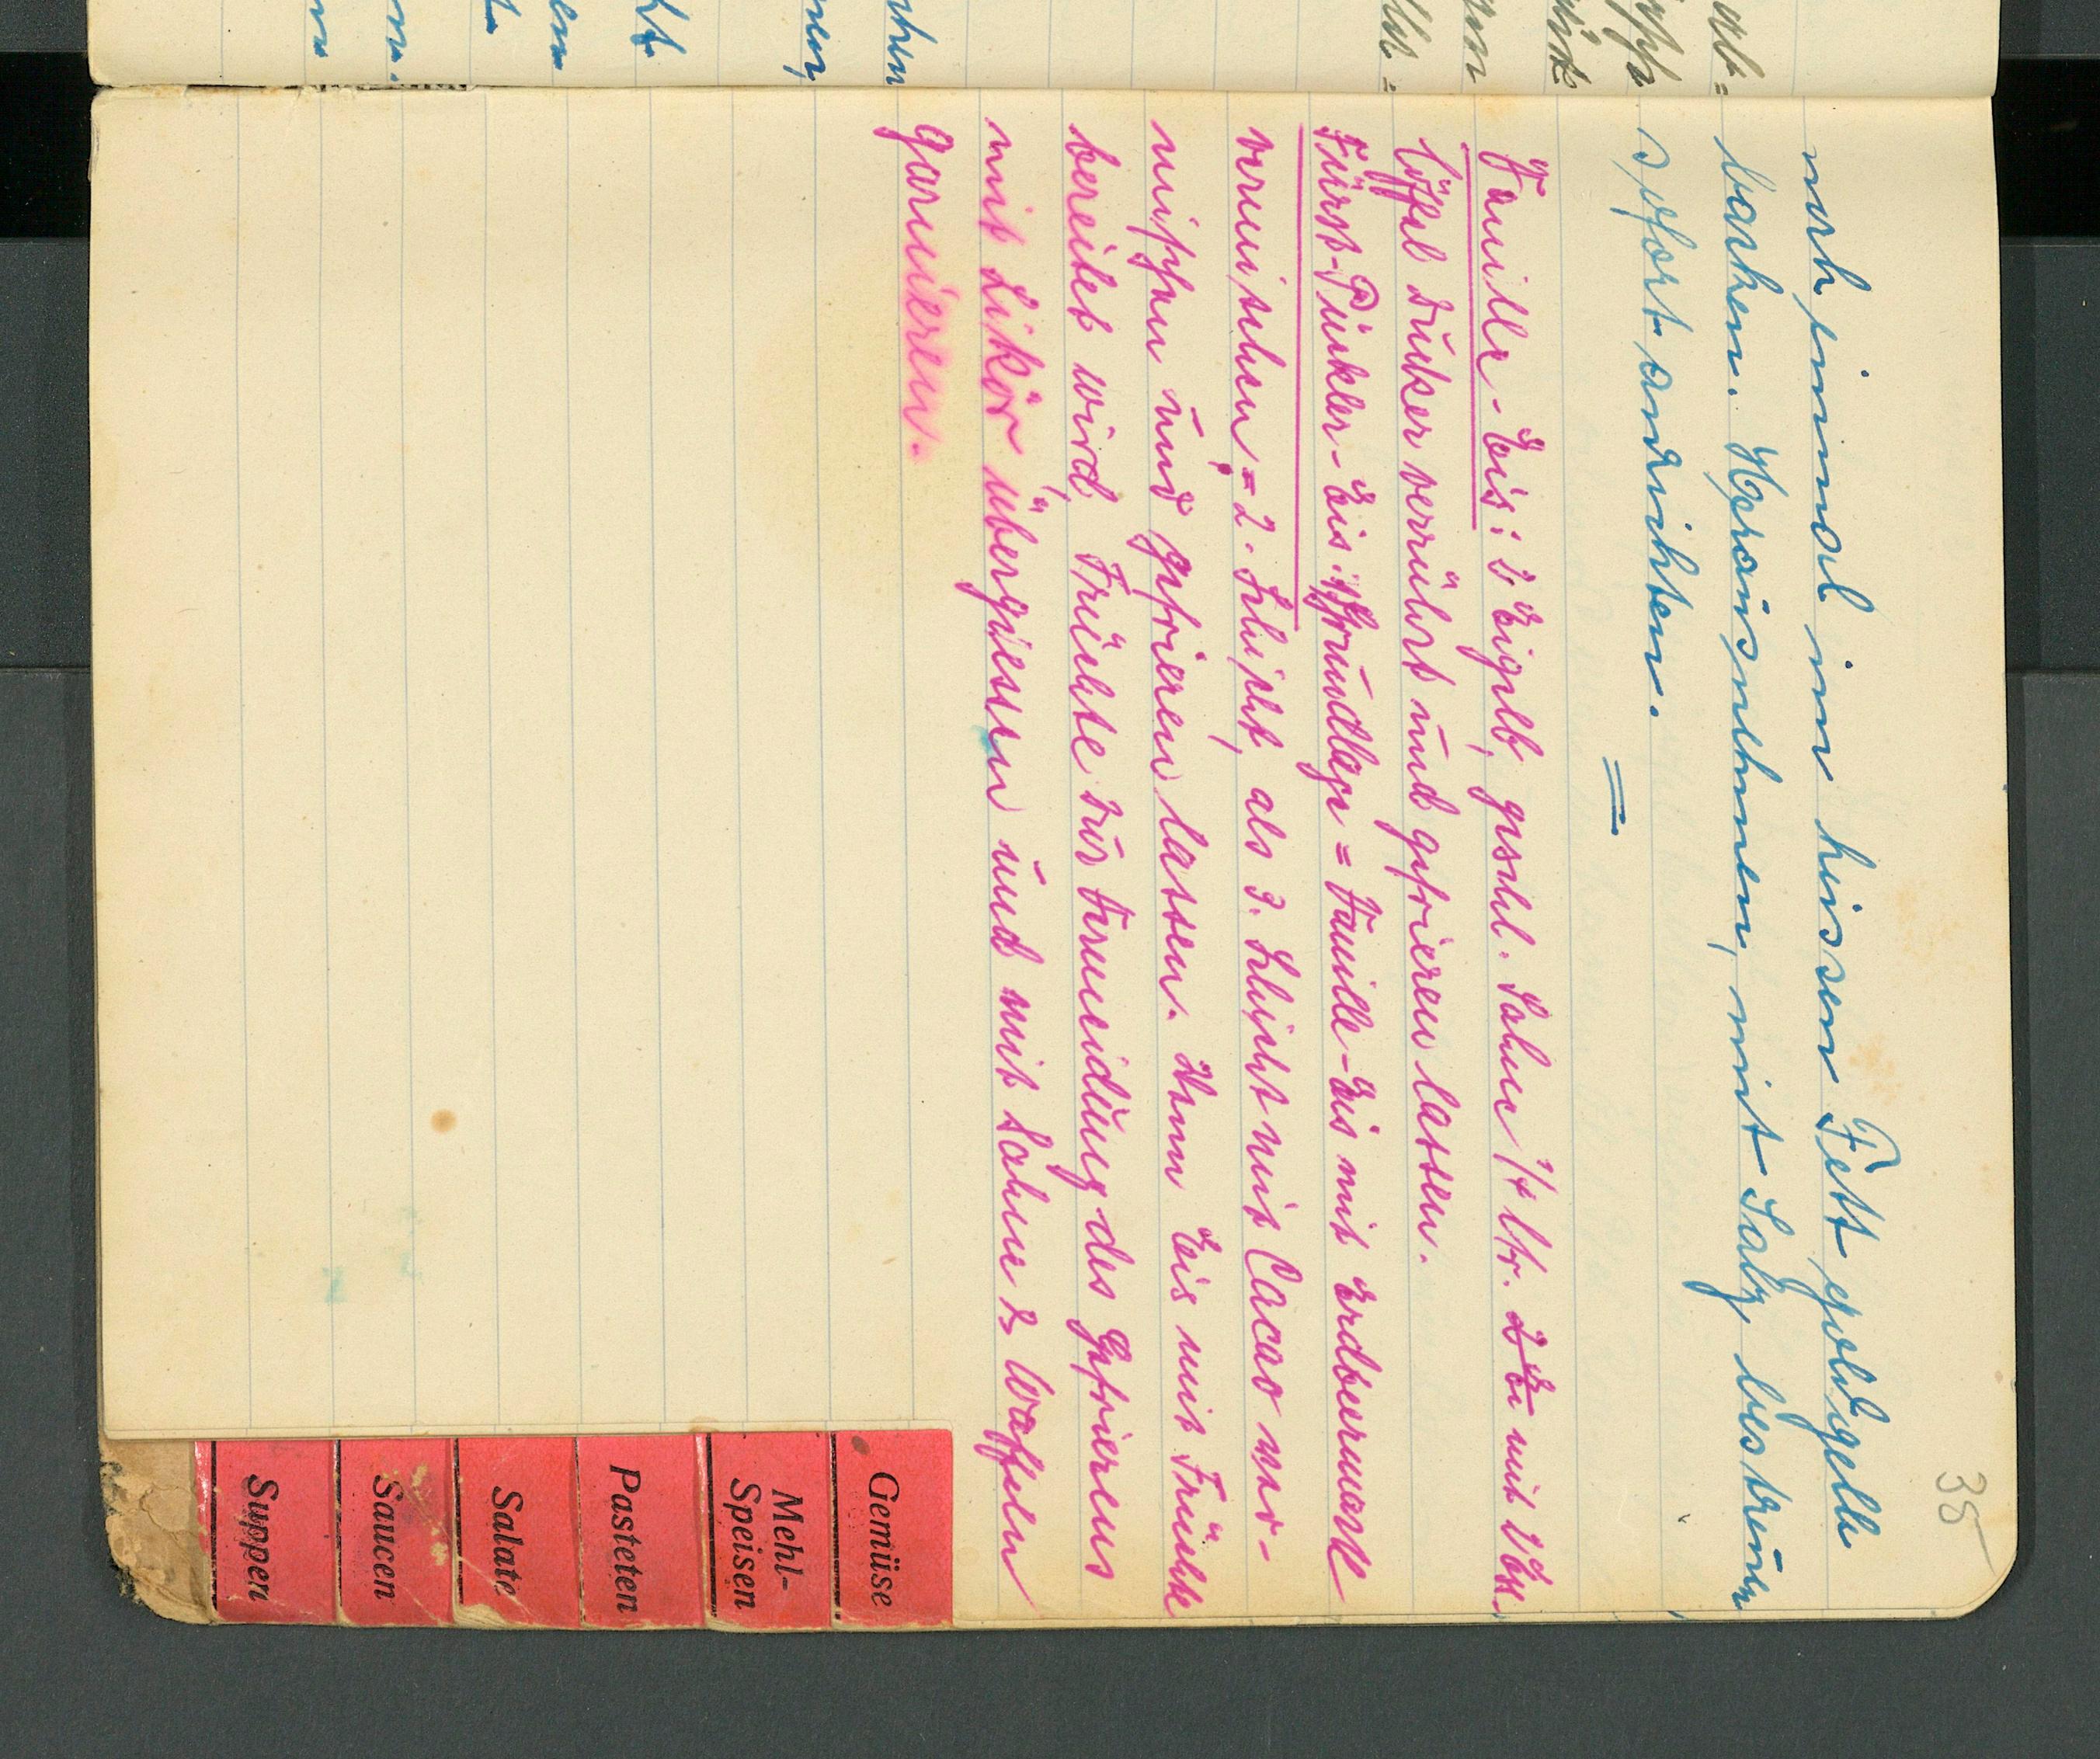 35
noch einmal in heissem Fett goldgelb
backen. Herausnehmen, mit Salz bestreuen
sofort anrichten.
=
Vanille-Eis: 2 Eigelb, geschl. Sahne 1/4 ltr. mit 2 Essl.
löffel Zucker verrührt und gefrieren lassen.
Fürst-Pückler-Eis: Grundlage = Vanille-Eis mit Erdbeermark
vermischen, = 2. Schicht, als 3. Schicht mit Cacao ver-
mischen und gefrieren lassen. Wenn Eis mit Früchte
bereitet wird, Früchte zur Vermeidung des Gefrierens
mit Likör übergiessen und mit Sahne & Waffeln
garnieren.
Gemüse
Mehl-
Speisen
Pasteten
Salate
Saucen
Suppen